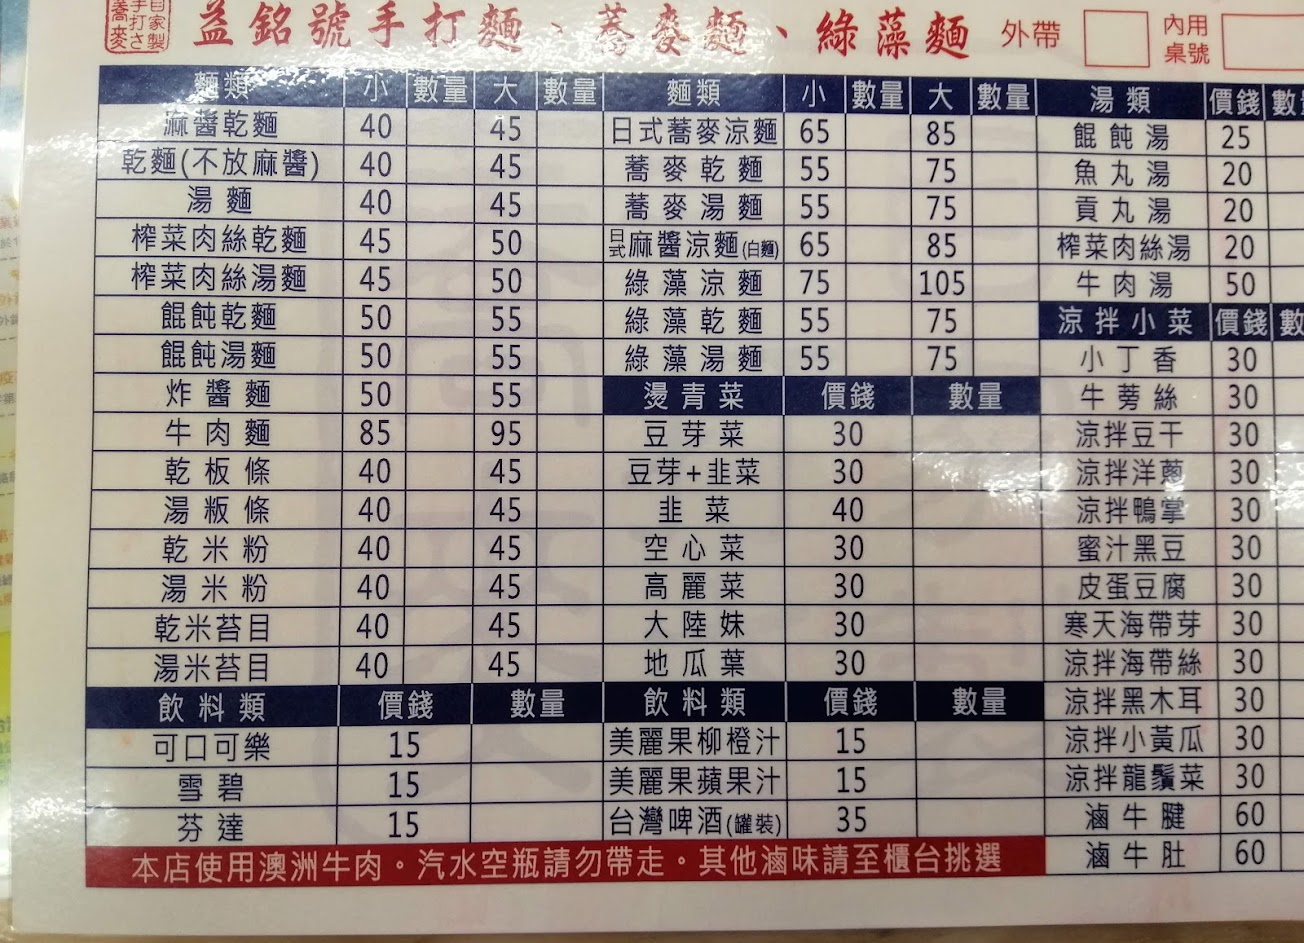 自家製
手打さ
蕎麥
益銘號手打麵、蕎麥麵、綠藻麵 外帶 內用桌號
麵類 小 數量 大 數量 麵類 小 數量 大 數量 湯類 價錢
麻醬乾麵 40 45 日式蕎麥涼麵 65 85 餛飩湯 25
乾麵(不放麻醬) 40 45 蕎麥乾麵 55 75 魚丸湯 20
湯麵 40 45 蕎麥湯麵 55 75 貢丸湯 20
榨菜肉絲乾麵 45 50 日式麻醬涼麵(白麵) 65 85 榨菜肉絲湯 20
榨菜肉絲湯麵 45 50 綠藻涼麵 75 105 牛肉湯 50
餛飩乾麵 50 55 綠藻乾麵 55 75 涼拌小菜 價錢 數
餛飩湯麵 50 55 綠藻湯麵 55 75 小丁香 30
炸醬麵 50 55 燙青菜 價錢 數量 牛蒡絲 30
牛肉麵 85 95 豆芽菜 30 涼拌豆干 30
乾板條 40 45 豆芽+韭菜 30 涼拌洋蔥 30
湯粄條 40 45 韭菜 40 涼拌鴨掌 30
乾米粉 40 45 空心菜 30 蜜汁黑豆 30
湯米粉 40 45 高麗菜 30 皮蛋豆腐 30
乾米苔目 40 45 大陸妹 30 寒天海帶芽 30
湯米苔目 40 45 地瓜葉 30 涼拌海帶絲 30
飲料類 價錢 數量 飲料類 價錢 數量 涼拌黑木耳 30
可口可樂 15 美麗果柳橙汁 15 涼拌小黃瓜 30
雪碧 15 美麗果蘋果汁 15 涼拌龍鬚菜 30
芬達 15 台灣啤酒(罐裝) 35 滷牛腱 60
本店使用澳洲牛肉。汽水空瓶請勿帶走。其他滷味請至櫃台挑選 滷牛肚 60